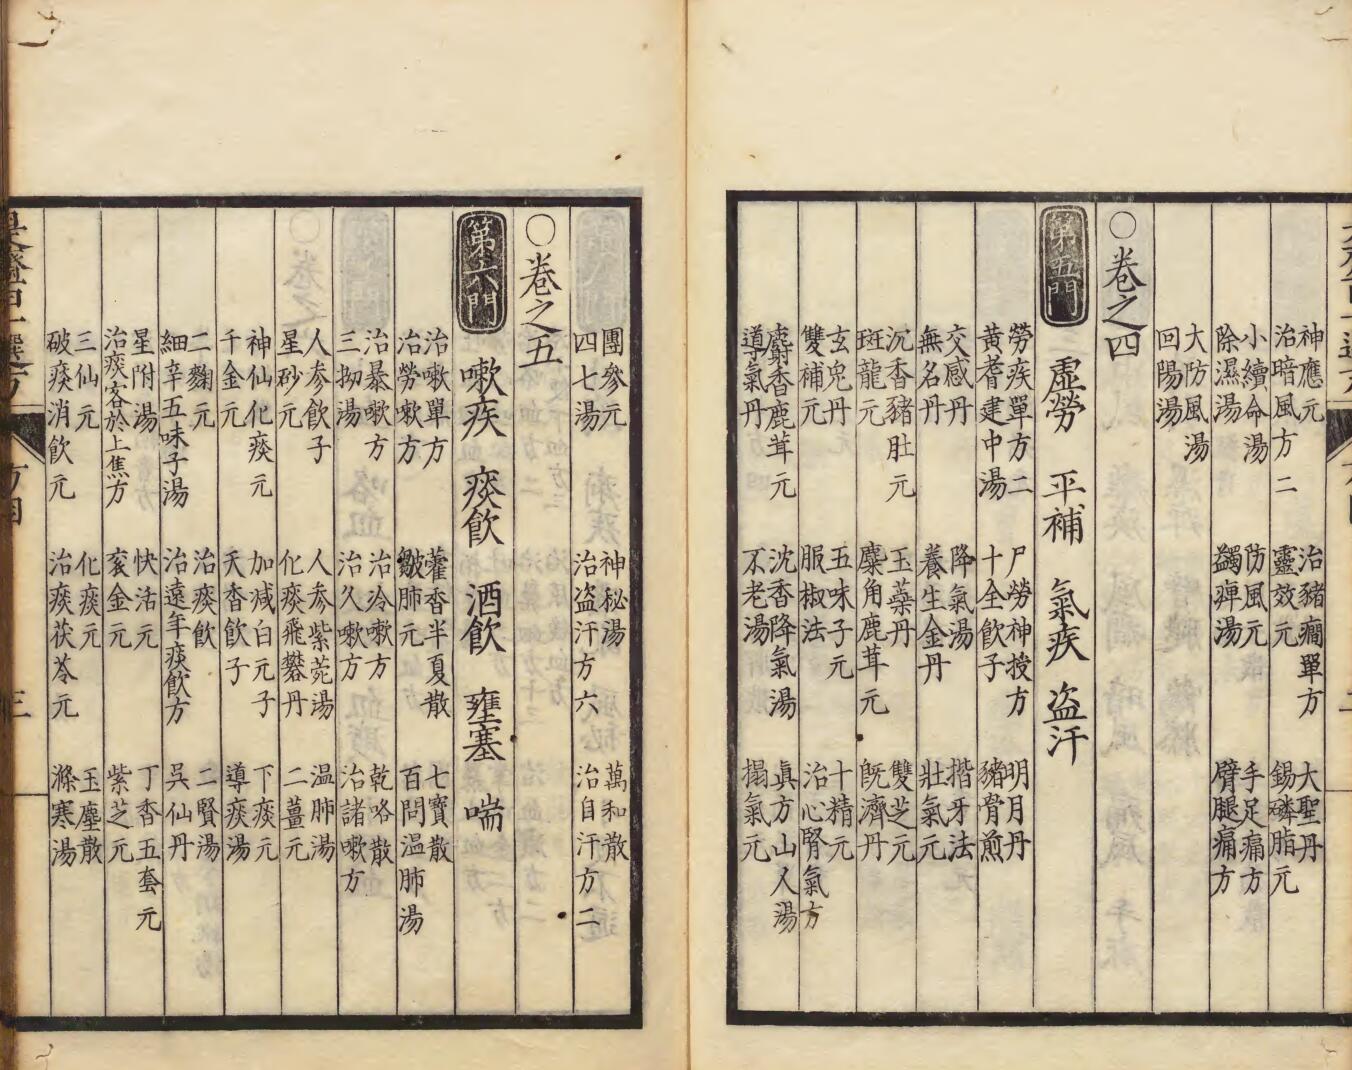 神應元 治豬癎單方 大聖丹
治暗風方二 靈效元 錫磷脂元
小續命湯 防風元 手足痛方
除濕湯 蠲痺湯 臂腿痛方
大防風湯
回陽湯
○卷之四
第五門 虛勞 平補 氣疾 盜汗
勞疾單方二 尸勞神授方 明月丹
黃耆建中湯 十全飲子 豬脊煎
交感丹 降氣湯 揩牙法
無名丹 養生金丹 壯氣元
沉香豬肚元 玉蘂丹 雙芝元
斑龍元 麋角鹿茸元 旣濟丹
玄兔丹 五味子元 十精元
雙補元 服椒法 治心腎氣方
麝香鹿茸元 沈香降氣湯 眞方山人湯
導氣丹 不老湯 搨氣元
團參元 神秘湯 萬和散
四七湯 治盗汗方六 治自汗方二
○卷之五
第六門 嗽疾 痰飲 酒飲 壅塞 喘
治嗽單方 藿香半夏散 七寶散
治勞嗽方 皺肺元 百問温肺湯
治暴嗽方 治冷嗽方 乾咯散
三拗湯 治久嗽方 治諸嗽方
人參飲子 人參紫菀湯 温肺湯
星砂元 化痰飛礬丹 二薑元
神仙化痰元 加減白元子 下痰元
千金元 天香飲子 導痰湯
二麴元 治痰飲 二賢湯
細辛五味子湯 治遠年痰飲方 吳仙丹
星附湯 快活元 丁香五套元
治痰客於上焦方 衮金元 紫芝元
三仙元 化痰元 玉塵散
破痰消飲元 治痰茯苓元 滌寒湯